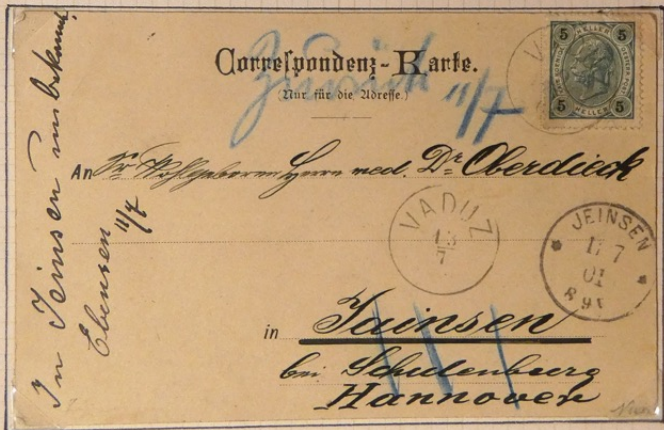 Correspondenz-Karte.
(Nur für die Adresse.)
Zurück 11/7
5 HELLER 5
5 HELLER 5
An Sr Wohlgeboren Herrn med. Dr Oberdieck
VADUZ
7
JEINSEN
11 7
01
in Jainsen
bei Schulenburg
Hannover
In Jeinsen unbekannt
Ebensen 11/7